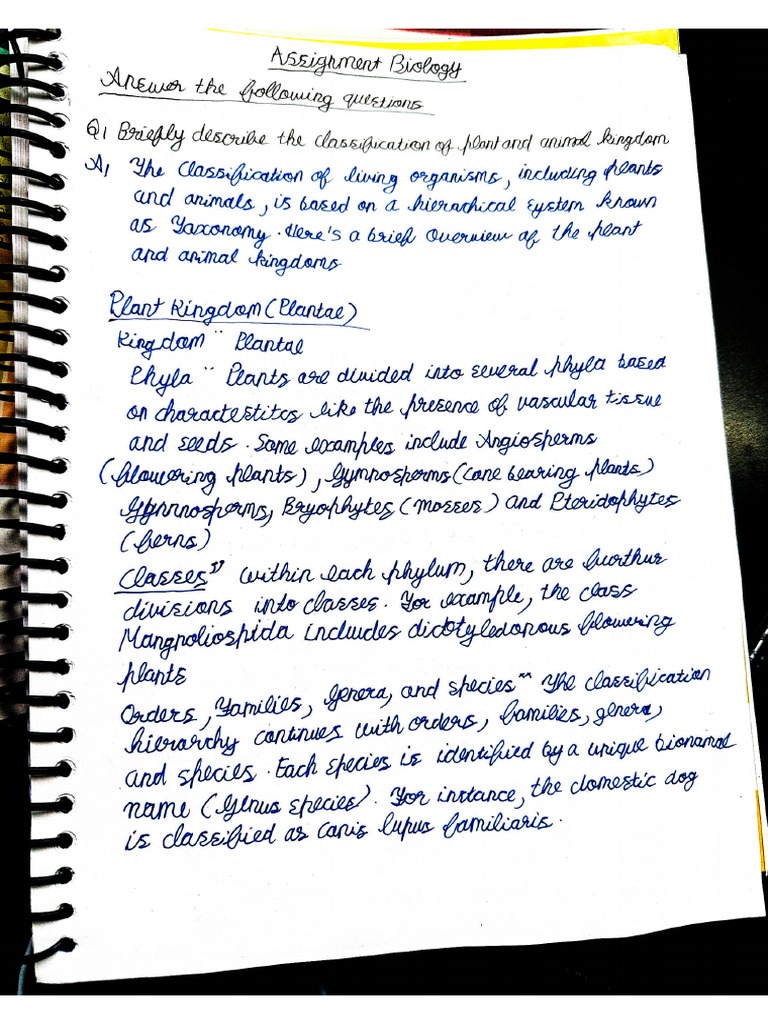 Assignment Biology
Answer the following questions
Q1 Briefly describe the classification of plant and animal kingdom
A1 The Classification of living organisms, including plants
and animals, is based on a hierachical system known
as Taxonomy. Here's a brief overview of the plant
and animal kingdoms
Plant Kingdom (Plantae)
Kingdom ¨ Plantae
Phyla ¨ Plants are divided into several phyla based
on charactestitcs like the presence of vascular tissue
and seeds. Some examples include Angiosperms
(flowering plants), Gymnosperms (cone bearing plants)
Gynnnosperms, Bryophytes (mosses) and Pteridophytes
(ferns)
Classes ¨ within each phylum, there are fuurthur
divisions into classes. For example, the class
Mangnoliospida includes dicotyledonous flowering
plants
Orders, Families, Genera, and species ¨ The classification
hierarchy continues with orders, families, genera,
and species. Each species is identified by a unique bionamal
name (Genus species). For instance, the domestic dog
is classified as canis lupus familiaris.